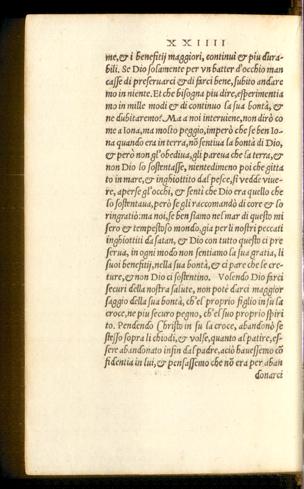 XXIIII
me, & i benefitij maggiori, continui & piu dura-
bili. Se Dio solamente per vn batter d'occhio man
casse di preseruarci & di farci bene, subito andare
mo in niente. Et che bisogna piu dire, esperimentia
mo in mille modi & di continuo la sua bontà, &
ne dubitaremo? Ma a noi interuiene, non dirò co
me a Iona, ma molto peggio, imperò che se ben Io-
na quando era in terra, nõ sentiua la bontà di Dio,
& però non gl'obediua, gli pareua che la terra, &
non Dio lo sostentasse, nientedimeno poi che gitta
to in mare, & inghiottito dal pesce, si veddè viue-
re, aperse gl'occhi, & sentì che Dio era quello che
lo sostentaua, però se gli raccomandò di core & lo
ringratiò: ma noi, se ben siamo nel mar di questo mi
sero & tempestoso mondo, gia per li nostri peccati
inghiottiti da satan, & Dio con tutto questo ci pre
serua, in ogni modo non sentiamo la sua gratia, li
suoi benefitij, nella sua bontà, & ci pare che le cre-
ture, & non Dio ci sostentino. Volendo Dio farci
securi della nostra salute, non potè darci maggior
saggio della sua bontà, ch'el proprio figlio in su la
croce, ne piu securo pegno, ch'el suo proprio spiri
to. Pendendo Christo in su la croce, abandonò se
stesso sopra li chiodi, & volse, quanto al patire, es-
sere abandonato infin dal padre, aciò hauessemo cõ
fidentia in lui, & pensassemo che nõ era per aban
donarci